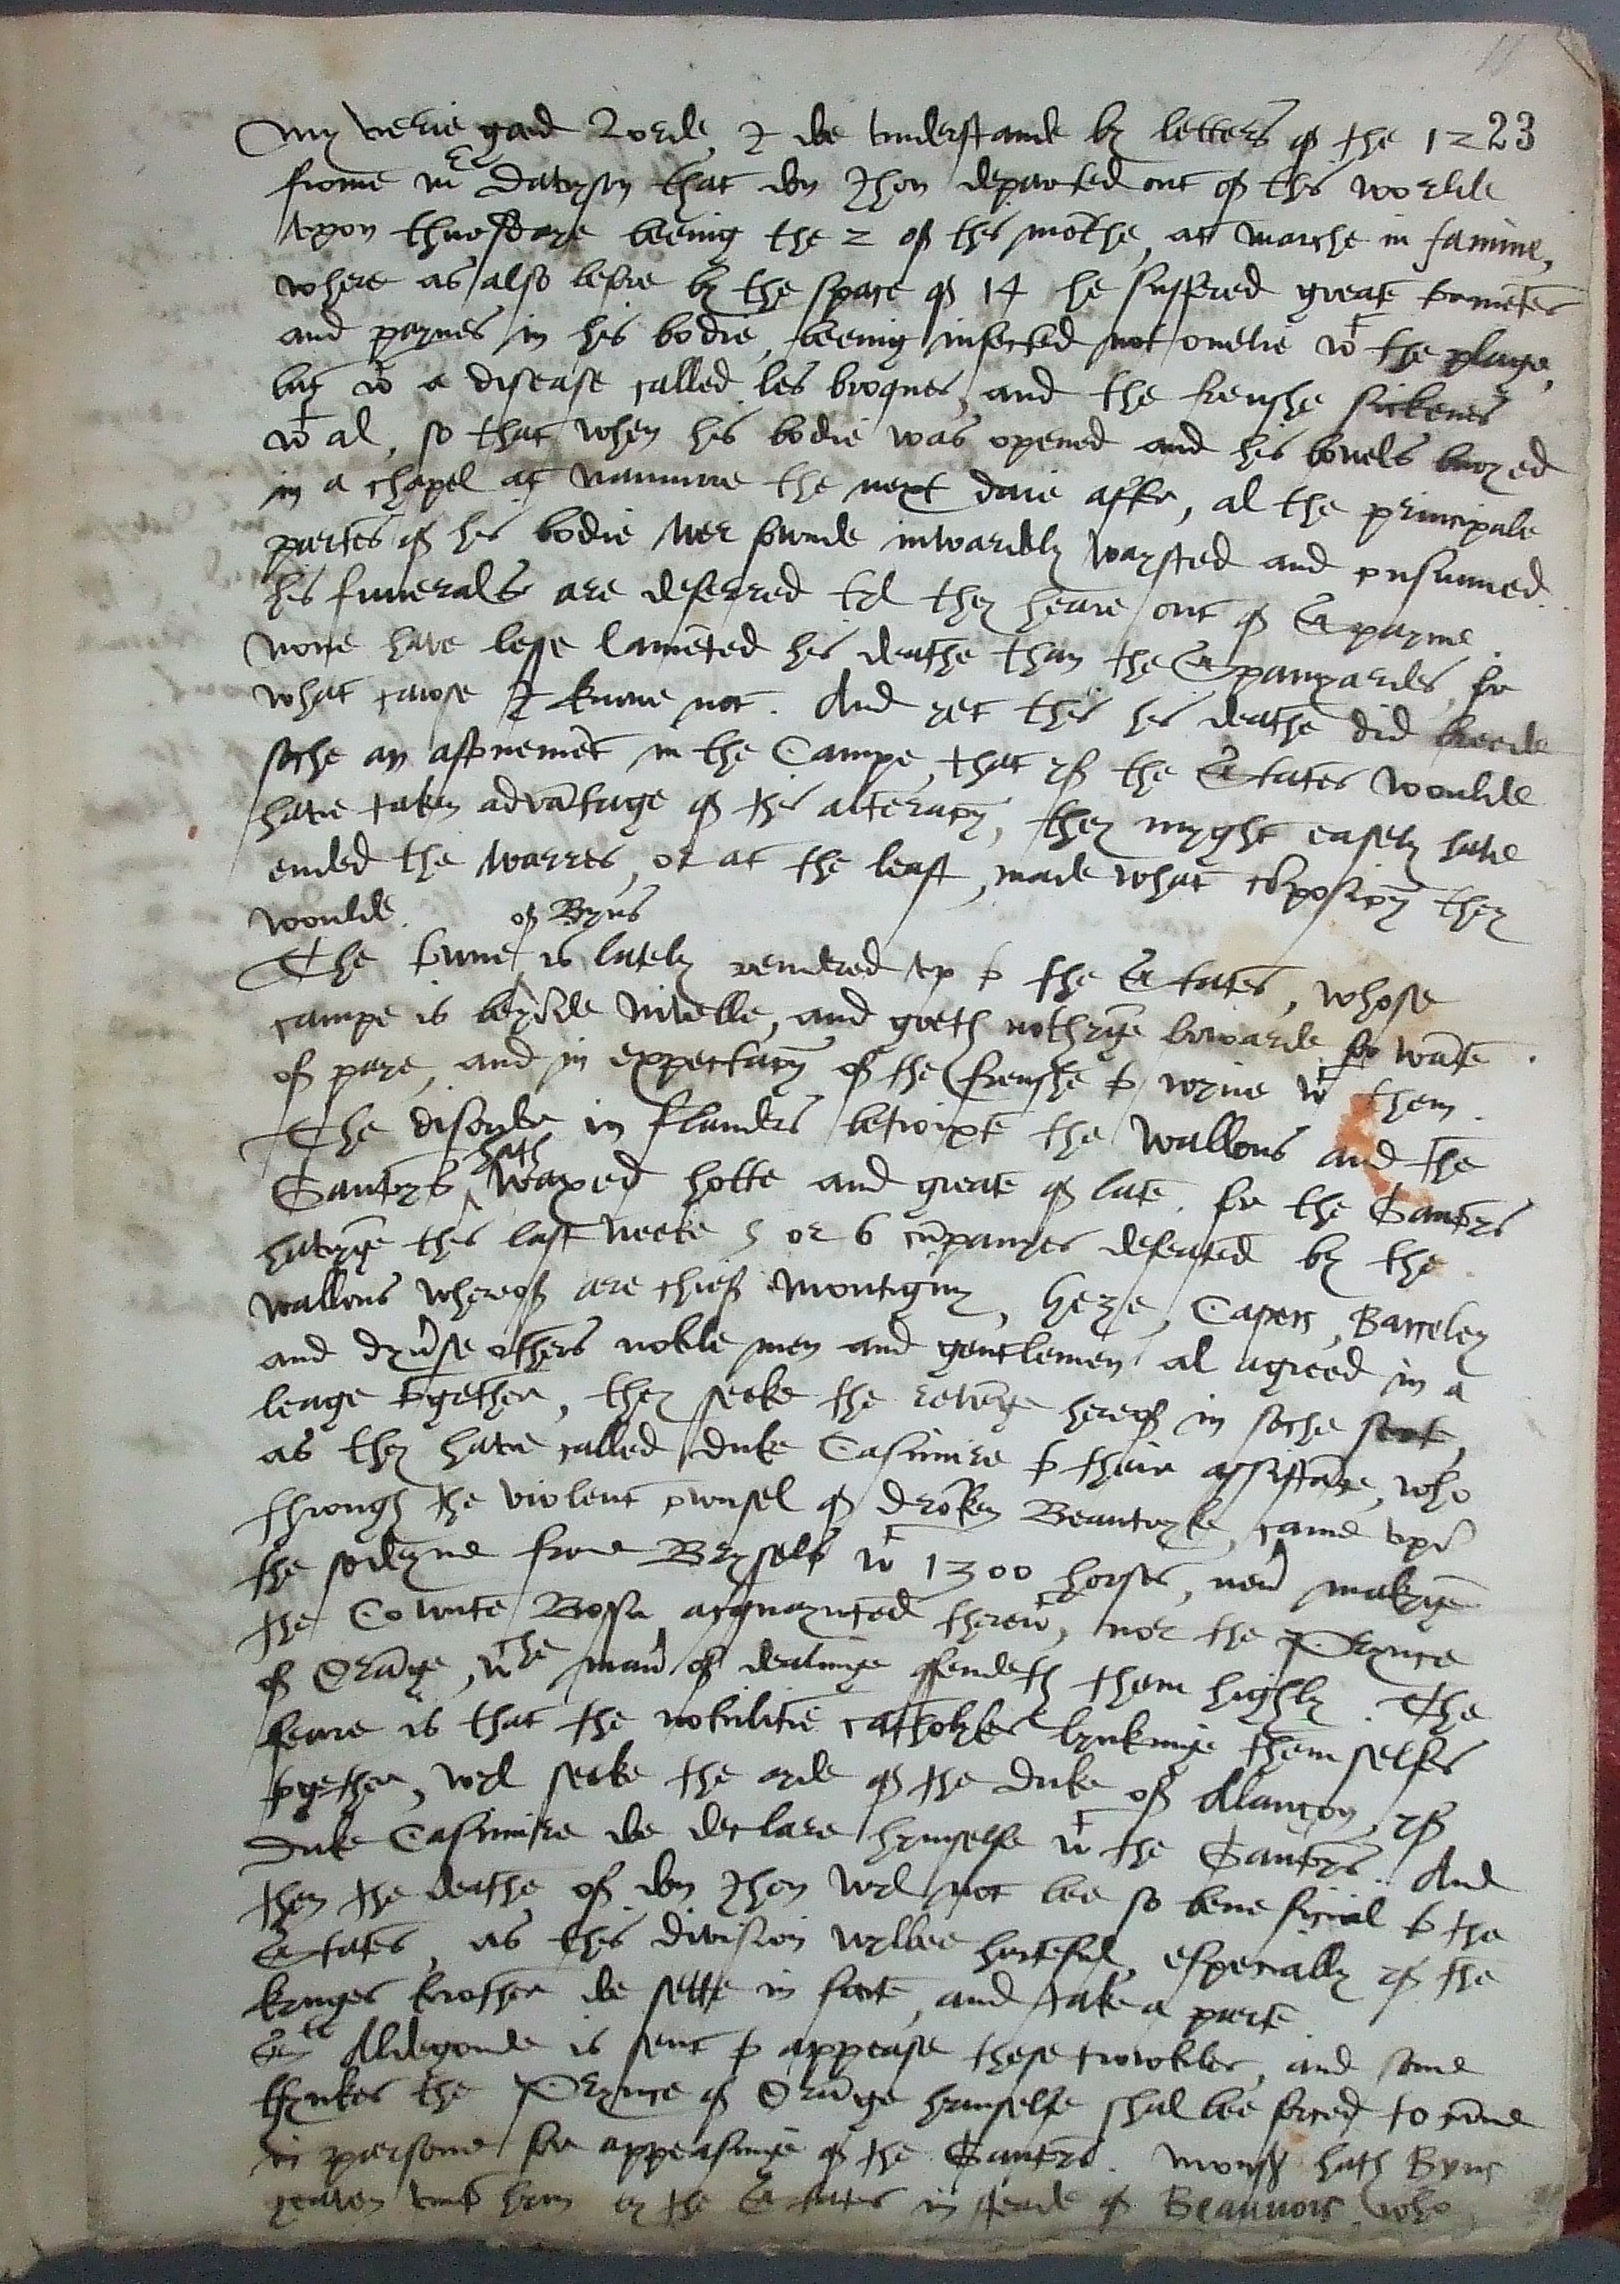 My verie good Lorde, I do understande by letters of the 12 23
frome mr Davyson that don Jhon departed out of this worlde
upon thursdaye beeing the 2 of this mōthe, at marche in famine,
where as also before by the space of 14 he suffered greate tormētes
and paynes in his bodie, beeing infected not onelie wt the plage,
but wt a disease called les broques, and the frenshe sickenes
wt al, so that when his bodie was opened and his bouels buryed
in a chapel at namure the next daie after, al the principale
partes of his bodie wer founde inwardely waysted and consumed.
his funerals are deferred tyl they heare out of Spayne.
none have lesse lamēted his deathe than the Spanyardes, for
what cause I knowe not. And yet this his deathe did breede
soche an astonemēt in the Campe, that yf the States woulde
have taken advātage of this alteracyō, they myght easely have
ended the warres, or at the least, made what cōposicyō they
woulde.
The towne of Byns is lately rendered up to the States, whose
campe is besyde nivelle, and goeth nothynge forwarde for wāte
of paye, and in expectacyō of the frenshe to ioyne wt them.
The disorder in flanders betwixte the Wallons and the
Gantoys hath waxed hotte and greate of late, for the Gantoys
havynge this last weeke 5 or 6 cōpanyes defeated by the
wallons whereof are chief Montigny, Heze, Capers, Barseley
and dyverse others noble men and gentlemen al agreed in a
leage together, they seeke the revēge hereof in soche sort,
as they have called duke Casimire to their assistāce, who
through the violent counsel of drōken Beautryke, came upō
the sodeyne frome Brysels wt 1300 horses, never makynge
the Counte Bossu acquaynted therewt, nor the Prynce
of Orānge, wche maner of dealinge offendeth them highly. The
feare is that the nobilitie catholykes lynkinge them selfes
together, wyl seeke the ayde of the duke of Alançon, yf
duke Casimire do declare hymselfe wt the Gantoys. And
then the deathe of don Jhon wyl not bee so beneficial to the
States, as this division wylbee hurteful, especially yf the
kynges brother do sette in foote, and take a parte.
Ste Aldegonde is sent to appease these troobles, and some
thynkes the Prynce of Orānge hymselfe shal bee forced to come
in persone for appeasinge of the Gantoys. Monsr hath Byns
geaven unto hym by the States in steade of Beauvois, who